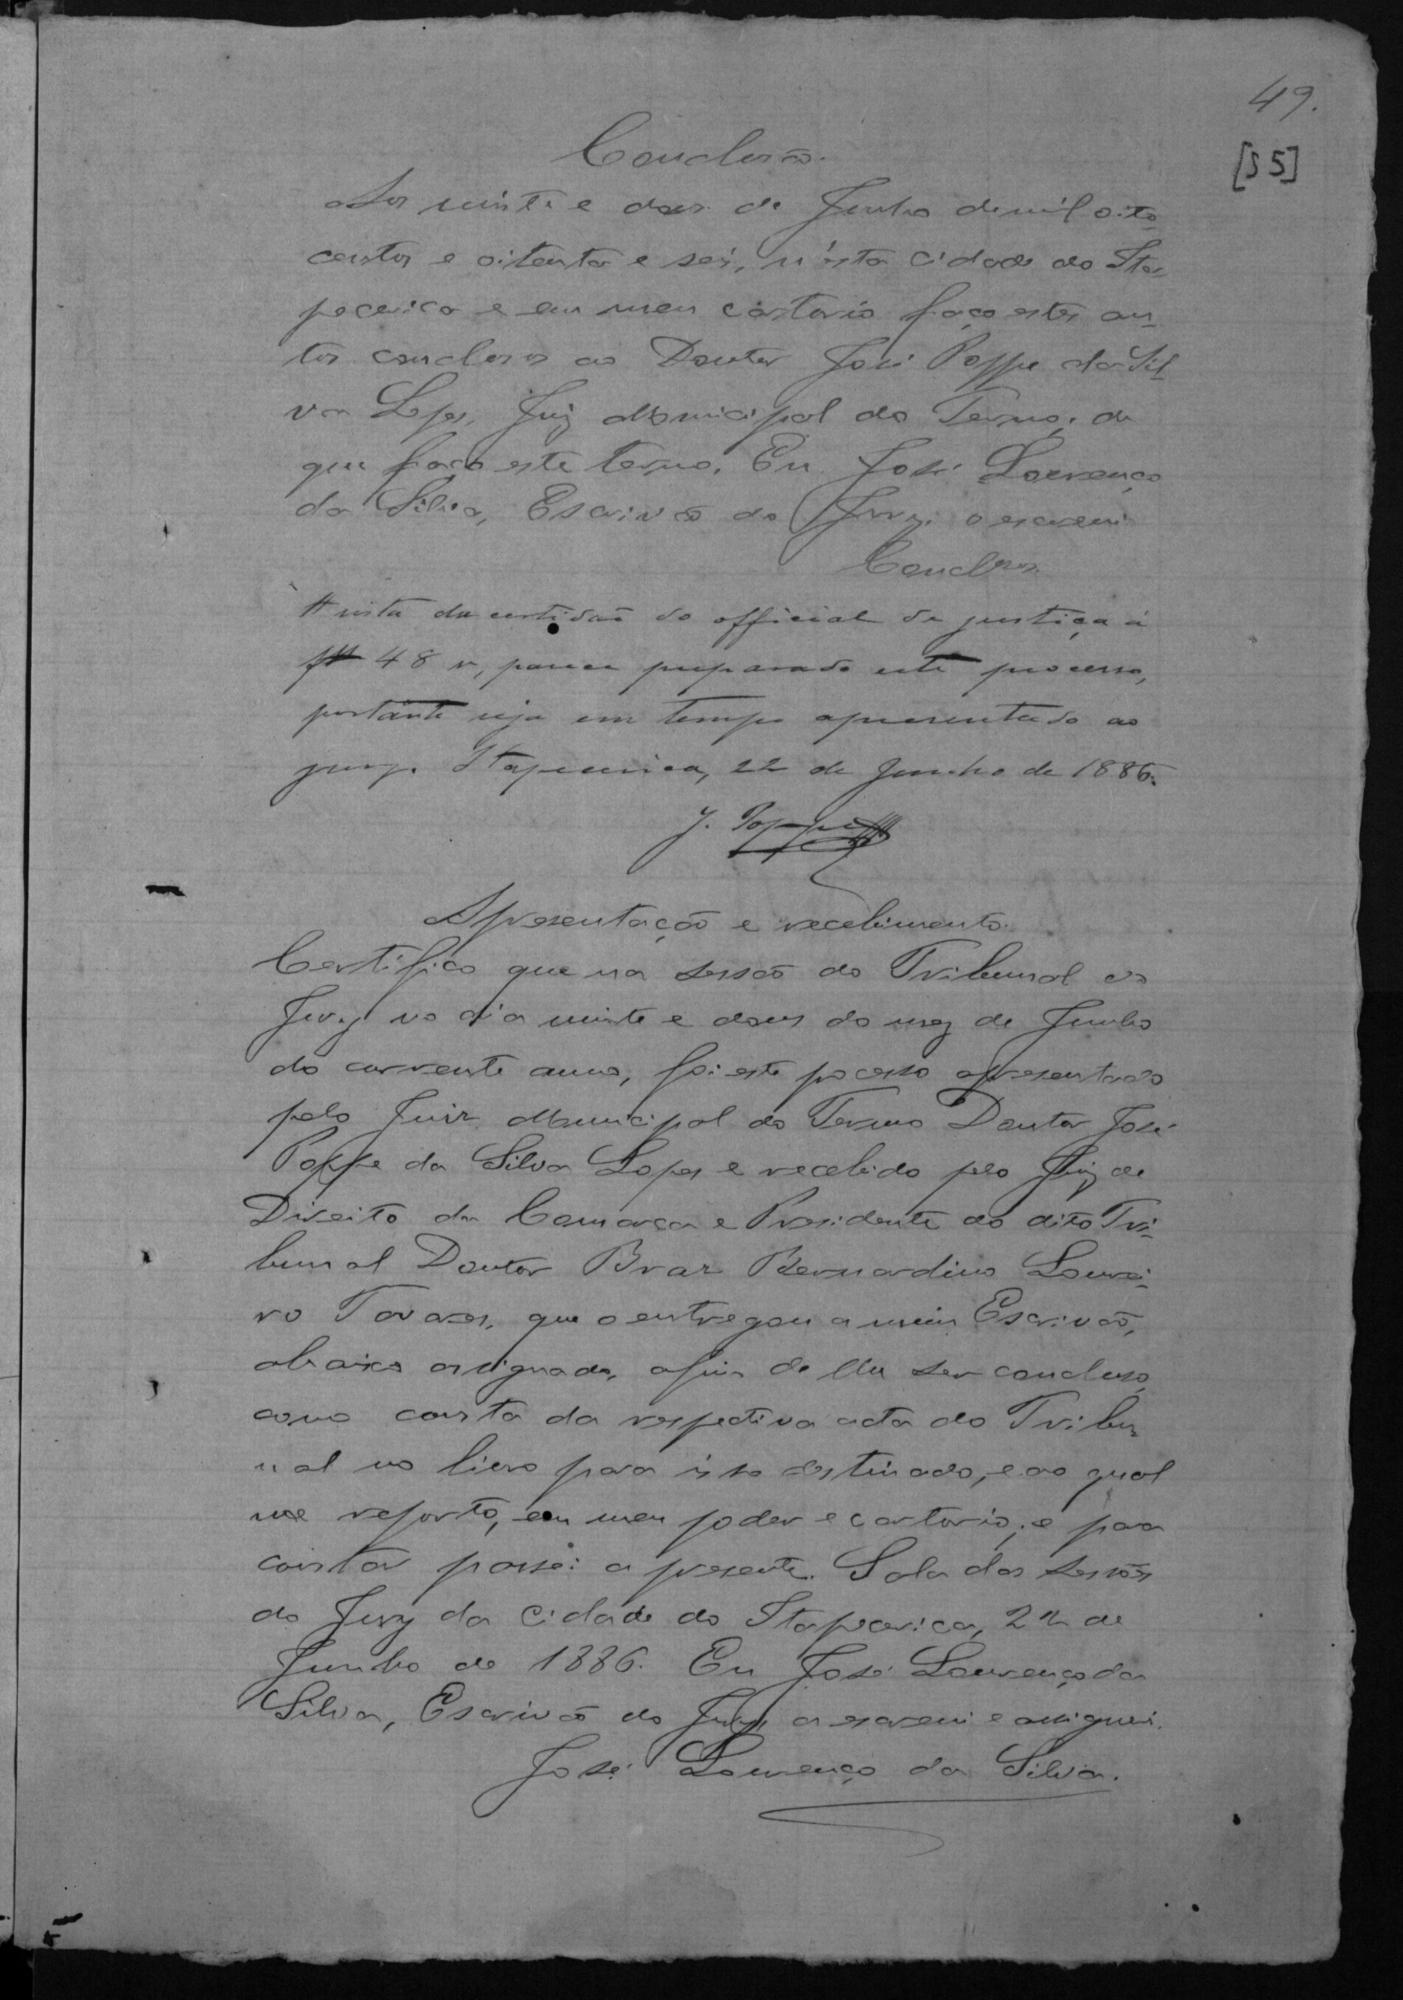 49.
[55]
Conclusão.
Aos vinte e dous de Junho de mil oito
centos e oitenta e seis, n'esta cidade do Ita
pecerica e em meu cartorio faço estes au
tos conclusos ao Doutor José Poppe da Sil
va Lopes, Juiz Municipal do Termo; do
que faço este termo. Eu José Lourenço
da Silva, Escrivão do Jury o escrevi
Conclusos.
A' vista da certidão do official de justiça á
fls 48 v, parece preparado este processo,
portanto seja em tempo apresentado ao
jury. Itapecerica, 22 de Junho de 1886.
J. Poppe
Apresentação e recebimento.
Certifico que na sessão do Tribunal do
Jury no dia vinte e dous do mez de Junho
do corrente anno, foi este pocesso apresentado
pelo Juiz Municipal do Termo Doutor José
Poppe da Silva Lopes e recebido pelo Juiz de
Direito da Comarca e Presidente do dito Tri-
bunal Doutor Braz Bernardino Lourei-
ro Tavares, que o entregou a mim Escrivão,
abaixo assignado, afim de lhe ser concluso,
como consta da respectiva acta do Tribu
nal no livro para isso destinado, e ao qual
me reporto, em meu poder e cartorio; e para
constar passei a presente. Sala das sessões
do Jury da cidade do Itapecerica, 22 de
Junho de 1886. Eu José Lourenço da
Silva, Escrivão do Jury a escrevi e assignei.
José Lourenço da Silva.